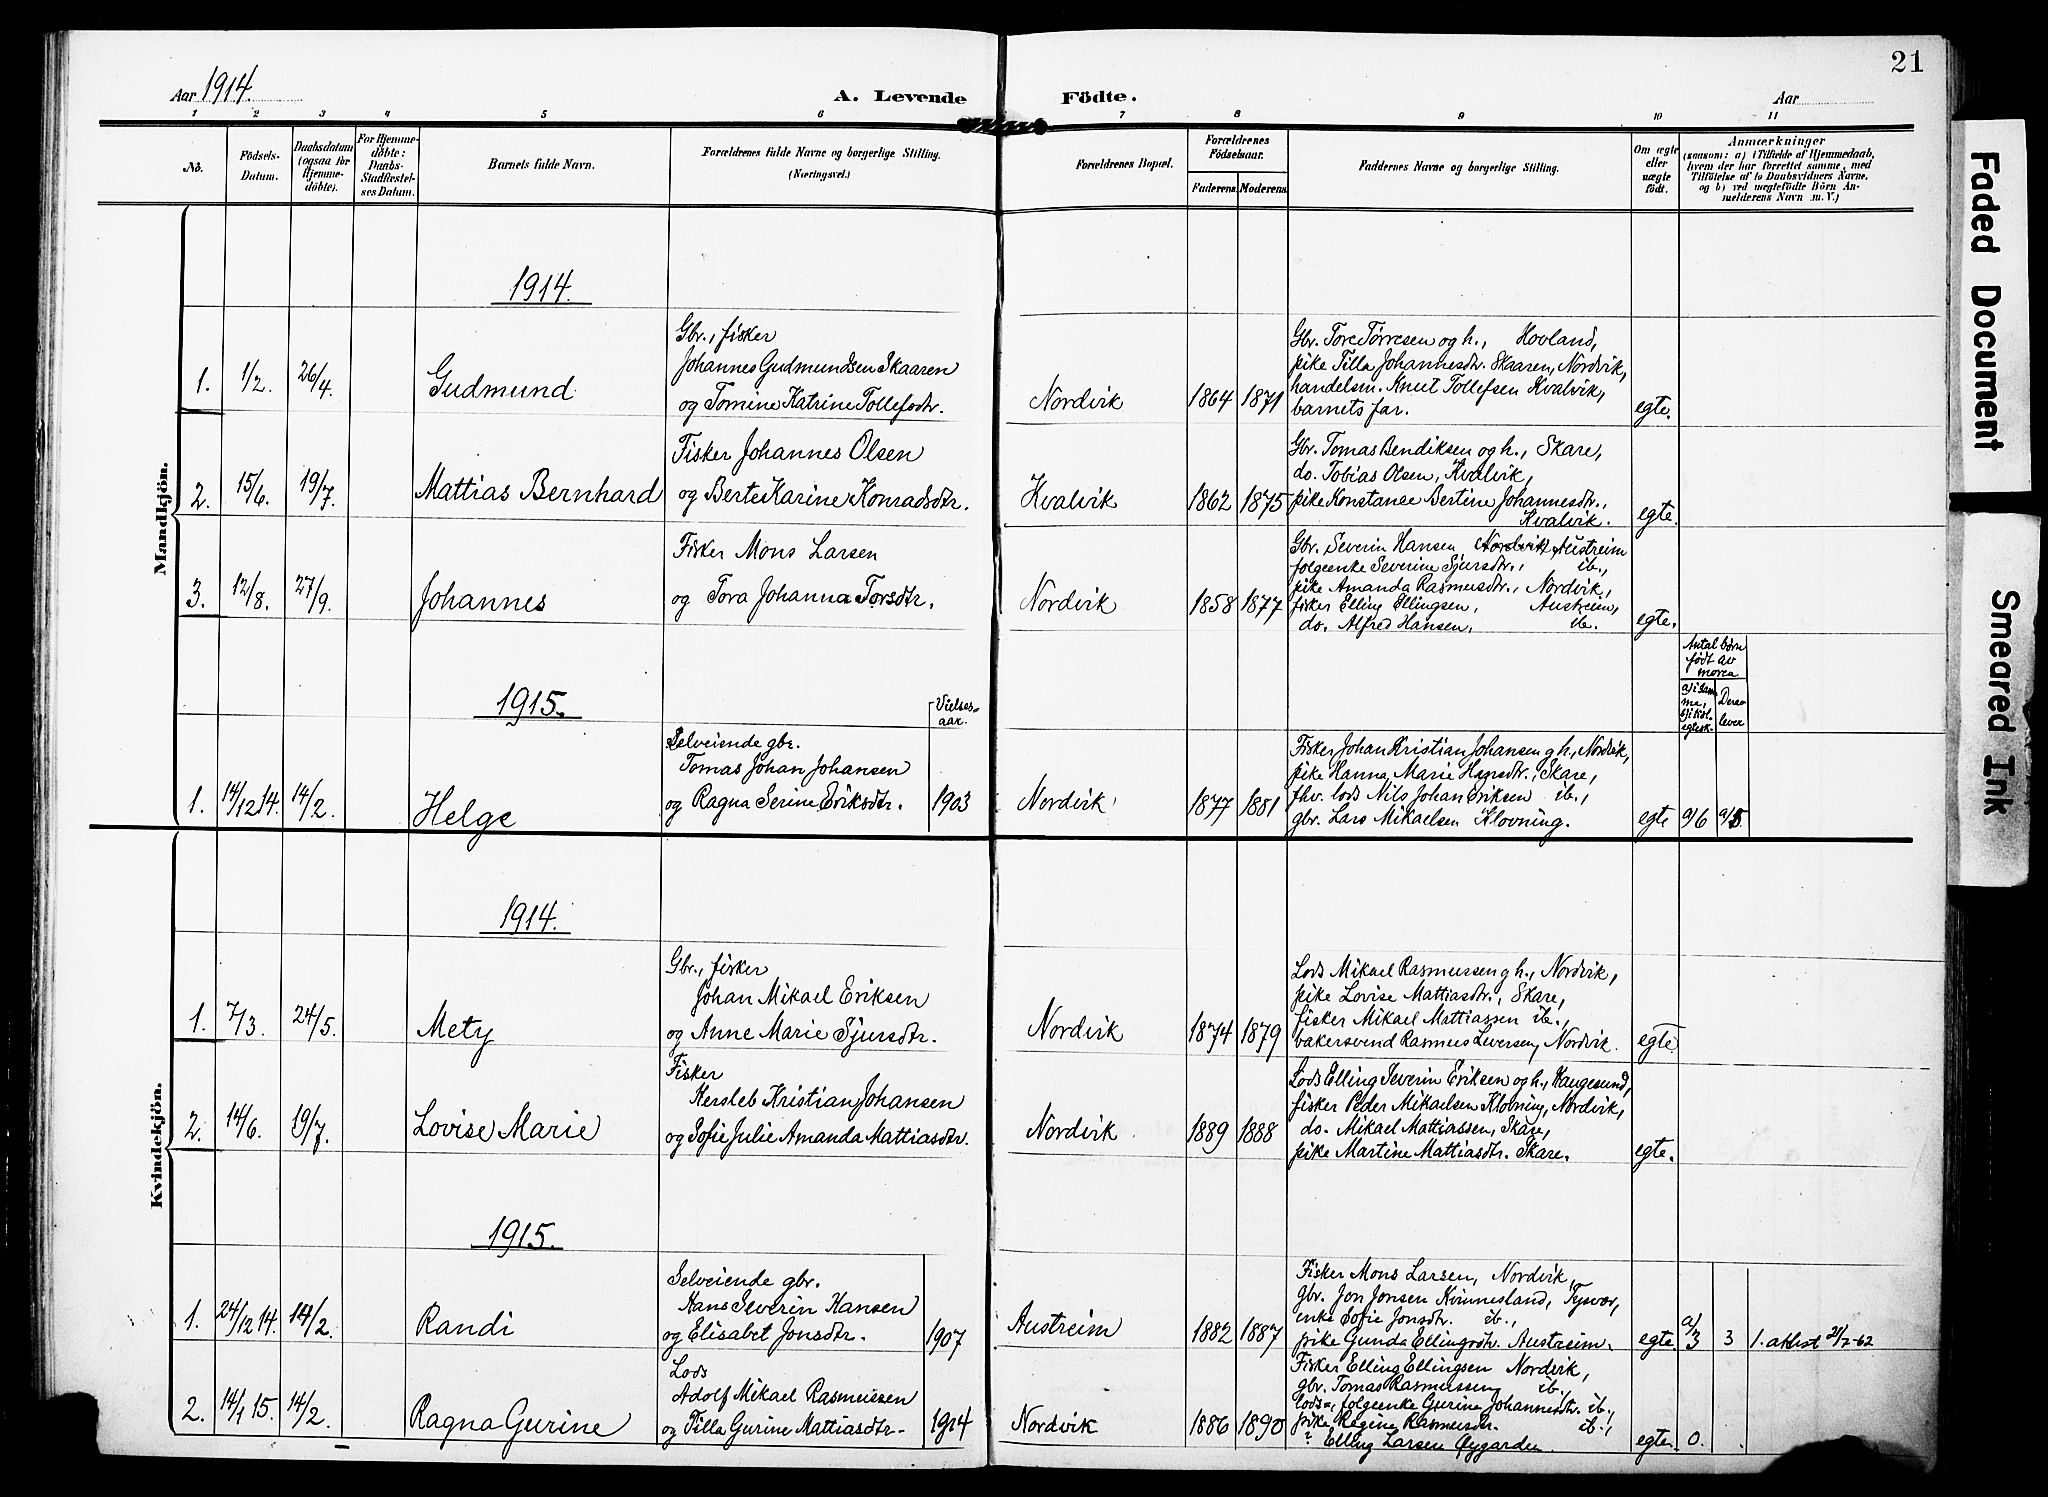 21
Aar 1914.
A. Levende Födte.
Aar
1 2 3 4 5 6 7 8 9 10 11
No.
Födsels-
Datum.
Daabsdatum
(ogsaa for
Hjemme-
døbte).
For Hjemme-
døbte:
Daabs-
Stadfæstel-
ses Datum.
Barnets fulde Navn.
Forældrenes fulde Navne og borgerlige Stilling.
(Næringsvei.)
Forældrenes Bopæl.
Forældrenes
Födselsaar.
Faderens. Moderens.
Faddernes Navne og borgerlige Stilling.
Om ægte
eller
uægte
født.
Anmærkninger
(saasom: a) i Tilfælde af Hjemmedaab,
hvem der har forrettet samme, med
Tilføielse af to Daabsvidners Navne,
og b) ved uægtefødte Børn An-
melderens Navn m. V.)
Mandkjön.
1914.
1. 1/2. 26/4. Gudmund
Gbr., fisker
Johannes Gudmundsen Skaaren
og Tomine Katrine Tollefsdtr.
Nordvik 1864 1871
Gbr. Tore Tørresen og h., Hovland,
pike Tilla Johannesdtr. Skaaren, Nordvik,
handelsm. Knut Tollefsen Kvalvik,
barnets far.
egte.
2. 15/6. 19/7. Mattias Bernhard
Fisker Johannes Olsen
og Berte Karine Konradsdtr.
Kvalvik 1862 1875
Gbr. Tomas Bendiksen og h., Skare,
do. Tobias Olsen, Kvalvik,
pike Konstanse Bertine Johannesdtr.,
Kvalvik.
egte.
3. 12/8. 27/9. Johannes
Fisker Mons Larsen
og Tora Johanna Torsdtr.
Nordvik 1858 1877
Gbr. Severin Hansen, Nordvik, Austreim
folgeenke Severine Sjursdtr., ib.,
pike Amanda Rasmusdtr., Nordvik,
fisker Elling Ellingsen, Austreim,
do. Alfred Hansen, ib.
egte.
1915.
Vielses-
aar.
Antal børn
født av
moren
Derav
lever
1. 14/12 14. 14/2. Helge
Selveiende gbr.
Tomas Johan Johansen
og Ragna Serine Eriksdtr. 1903
Nordvik 1877 1881
Fisker Johan Kristian Johansen g h., Nordvik,
pike Hanna Marie Hansdtr., Skare,
fhv. lods Nils Johan Eriksen ib.,
gbr. Lars Mikaelsen Klovning.
egte a/6 a/5.
Kvindekjön.
1914.
1. 7/3. 24/5. Mety
Gbr., fisker
Johan Mikael Eriksen
og Anne Marie Sjursdtr.
Nordvik 1874 1879
Lods Mikael Rasmussen g h., Nordvik,
pike Lovise Mattiasdtr., Skare,
fisker Mikael Mattiassen ib.,
bakersvend Rasmus Leversen, Nordvik.
egte
2. 14/6. 19/7. Lovise Marie
Fisker
Kersleb Kristian Johansen
og Sofie Julie Amanda Mattiasdtr.
Nordvik 1889 1888
Lods Elling Severin Eriksen og h., Haugesund,
fisker Peder Mikaelsen Klovning, Nordvik,
do. Mikael Mattiassen, Skare,
pike Martine Mattiasdtr. Skare.
egte.
1915.
1. 24/12 14. 14/2. Randi
Selveiende gbr.
Hans Severin Hansen
og Elisabet Jonsdtr. 1907
Austreim 1882 1887
Fisker Mons Larsen, Nordvik,
gbr. Jon Jonsen Kvinnesland, Tysvær,
enke Sofie Jonsdtr. ib.,
pike Gunda Ellingsdtr. Austreim.
egte. a/3 3 1. attest 21/2-62
2. 14/1 15. 14/2. Ragna Gurine
Lods
Adolf Mikael Rasmussen
og Tilla Gurine Mattiasdtr. 1914
Nordvik 1886 1890
Fisker Elling Ellingsen Nordvik,
gbr. Tomas Rasmussen ib.
lods=, folgeenke Gurine Johannesdtr. ib.,
pike Regine Rasmusdtr. ib.,
? Elling Larsen Øygarden.
egte. 0. .
Faded Document
Smeared Ink